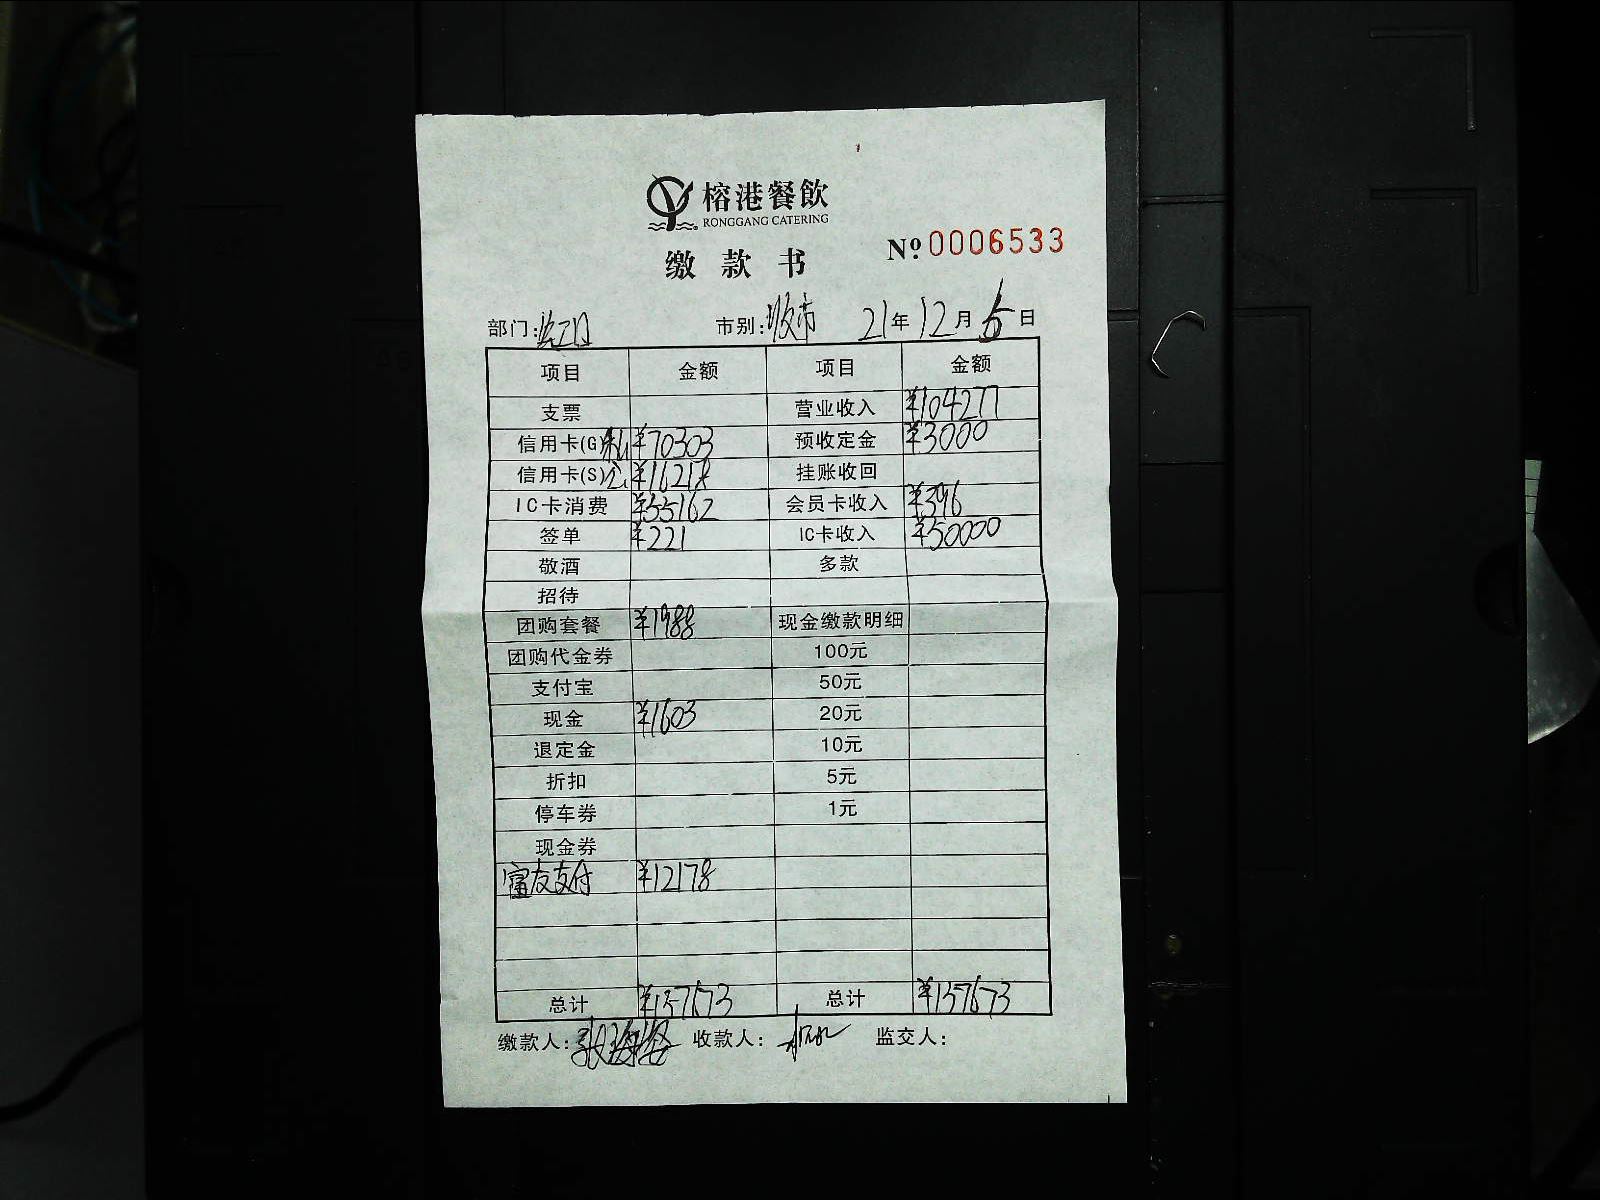 榕港餐飲
RONGGANG CATERING
缴款书 Nº 0006533
部门: 市别:收市 21年12月 日
项目 金额 项目 金额
支票 营业收入 ¥104277
信用卡(G)私 ¥70303 预收定金 ¥3000
信用卡(S)公 ¥16218 挂账收回
IC卡消费 ¥55162 会员卡收入 ¥396
签单 ¥221 IC卡收入 ¥50000
敬酒 多款
招待
团购套餐 ¥1988 现金缴款明细
团购代金券 100元
支付宝 50元
现金 ¥1603 20元
退定金 10元
折扣 5元
停车券 1元
现金券
富友支付 ¥12178
总计 ¥157673 总计 ¥157673
缴款人: 收款人: 监交人: